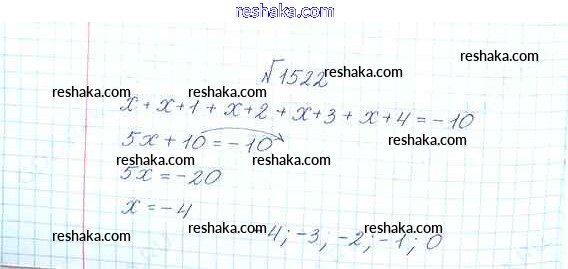 reshaka.com
№1522
reshaka.com
reshaka.com
reshaka.com
x + x + 1 + x + 2 + x + 3 + x + 4 = -10
reshaka.com
5x + 10 = -10
reshaka.com
reshaka.com
5x = -20
x = -4
reshaka.com
reshaka.com
reshaka.com
-4; -3; -2; -1; 0